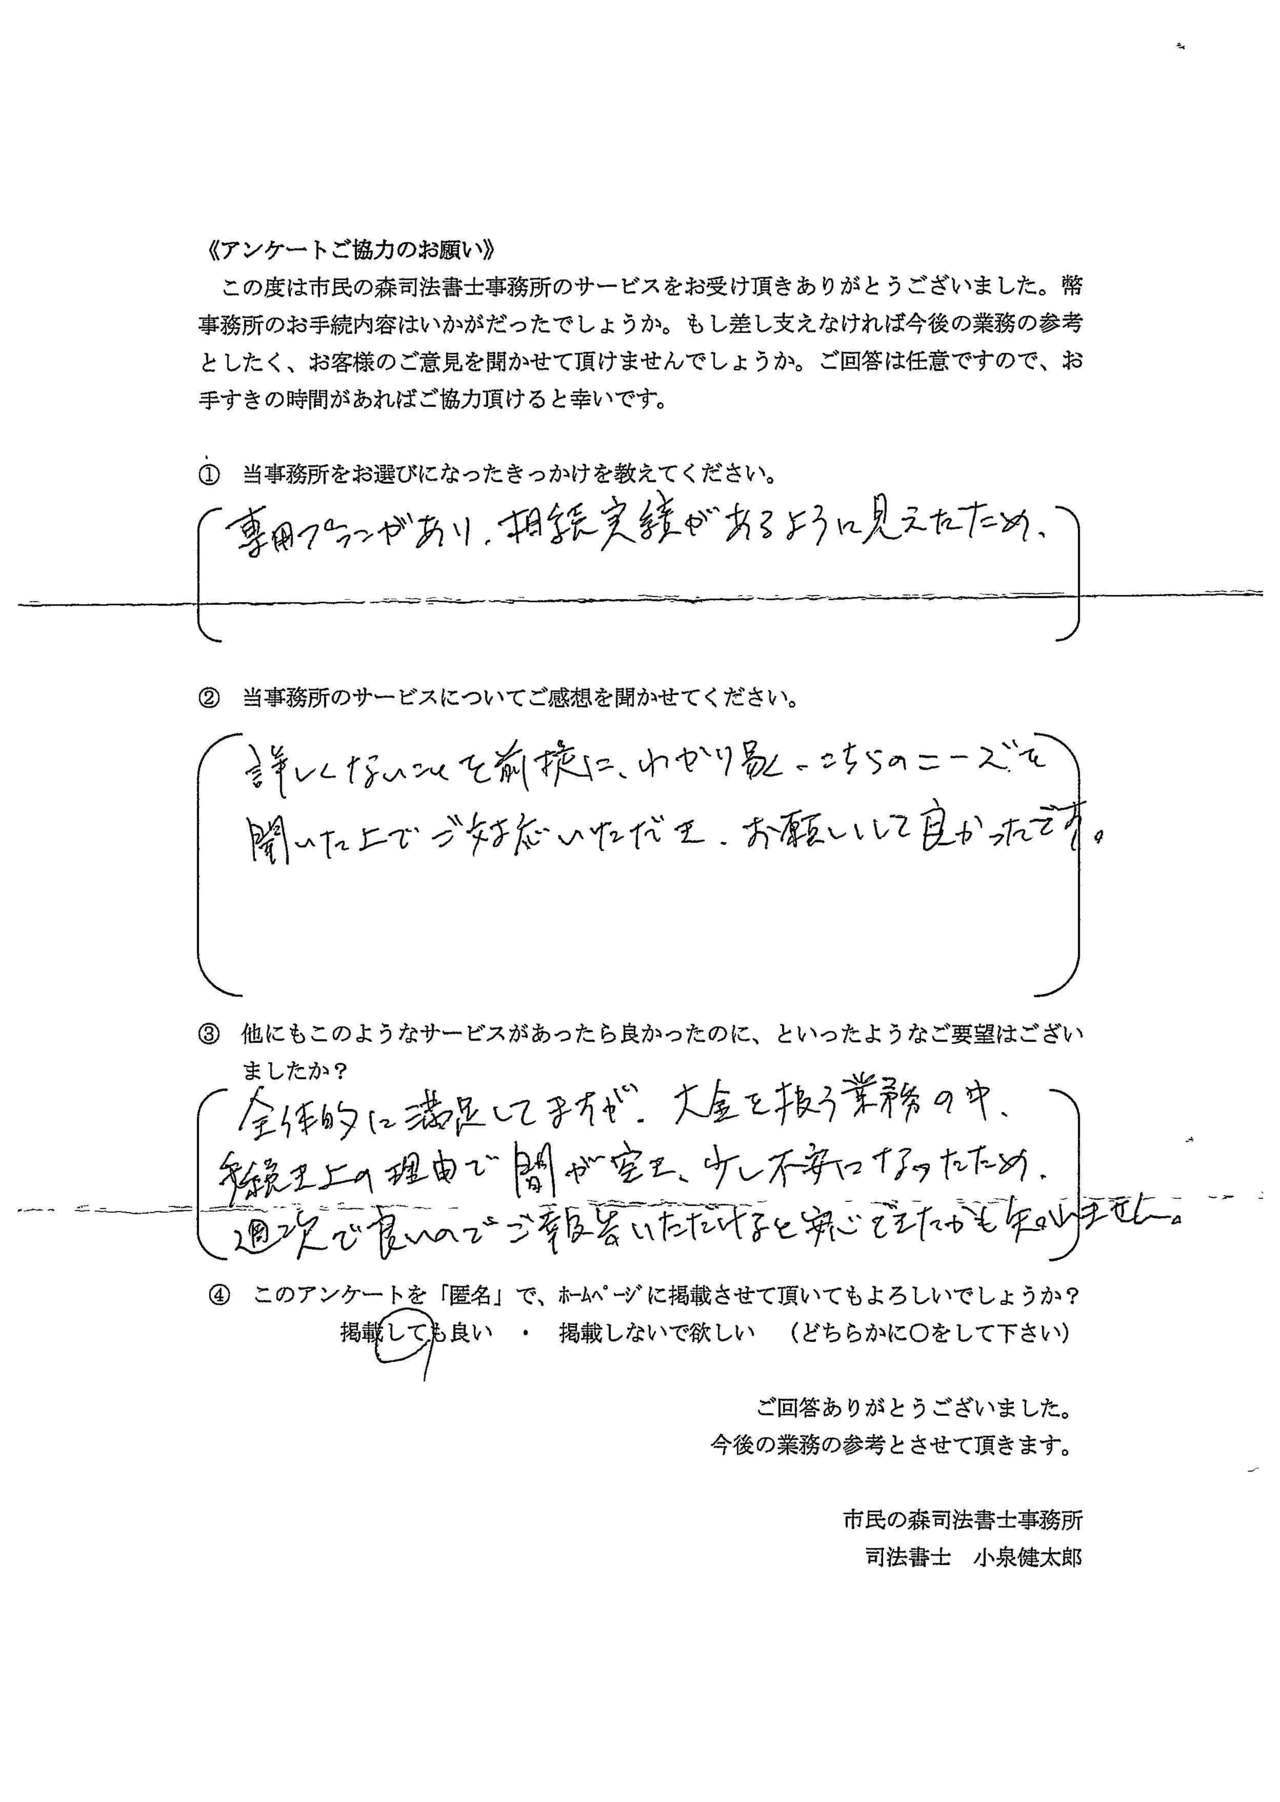 《アンケートご協力のお願い》
この度は市民の森司法書士事務所のサービスをお受け頂きありがとうございました。幣
事務所のお手続内容はいかがだったでしょうか。もし差し支えなければ今後の業務の参考
としたく、お客様のご意見を聞かせて頂けませんでしょうか。ご回答は任意ですので、お
手すきの時間があればご協力頂けると幸いです。
① 当事務所をお選びになったきっかけを教えてください。
専用プランがあり、相続実績があるように見えたため、
② 当事務所のサービスについてご感想を聞かせてください。
詳しくないことを前提に、わかり易く、こちらのニーズを
聞いた上でご対応いただき、お願いして良かったです。
③ 他にもこのようなサービスがあったら良かったのに、といったようなご要望はござい
ましたか？
全体的に満足してますが、大金を扱う業務の中、
手続き上の理由で間が空き、少し不安になったため、
週次で良いのでご報告いただけると安心できたかも知れません。
④ このアンケートを「匿名」で、ﾎｰﾑﾍﾟｰｼﾞに掲載させて頂いてもよろしいでしょうか？
掲載しても良い ・ 掲載しないで欲しい （どちらかに〇をして下さい）
ご回答ありがとうございました。
今後の業務の参考とさせて頂きます。
市民の森司法書士事務所
司法書士 小泉健太郎